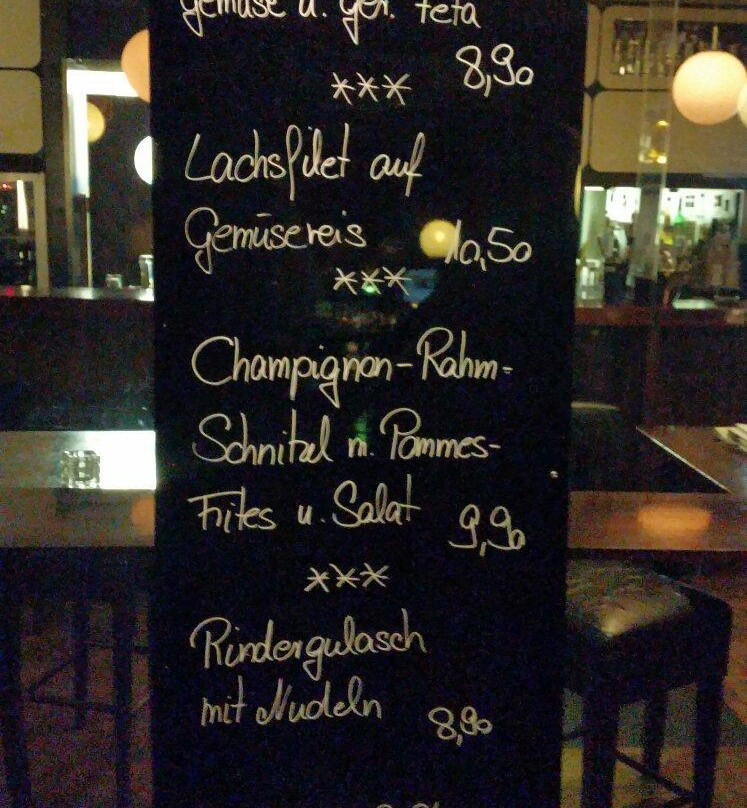 gemüse u. ger. feta
8,90
***
Lachsfilet auf
Gemüsereis 10,50
***
Champignon-Rahm-
Schnitzel m. Pommes-
Frites u. Salat 9,90
***
Rindergulasch
mit Nudeln 8,90